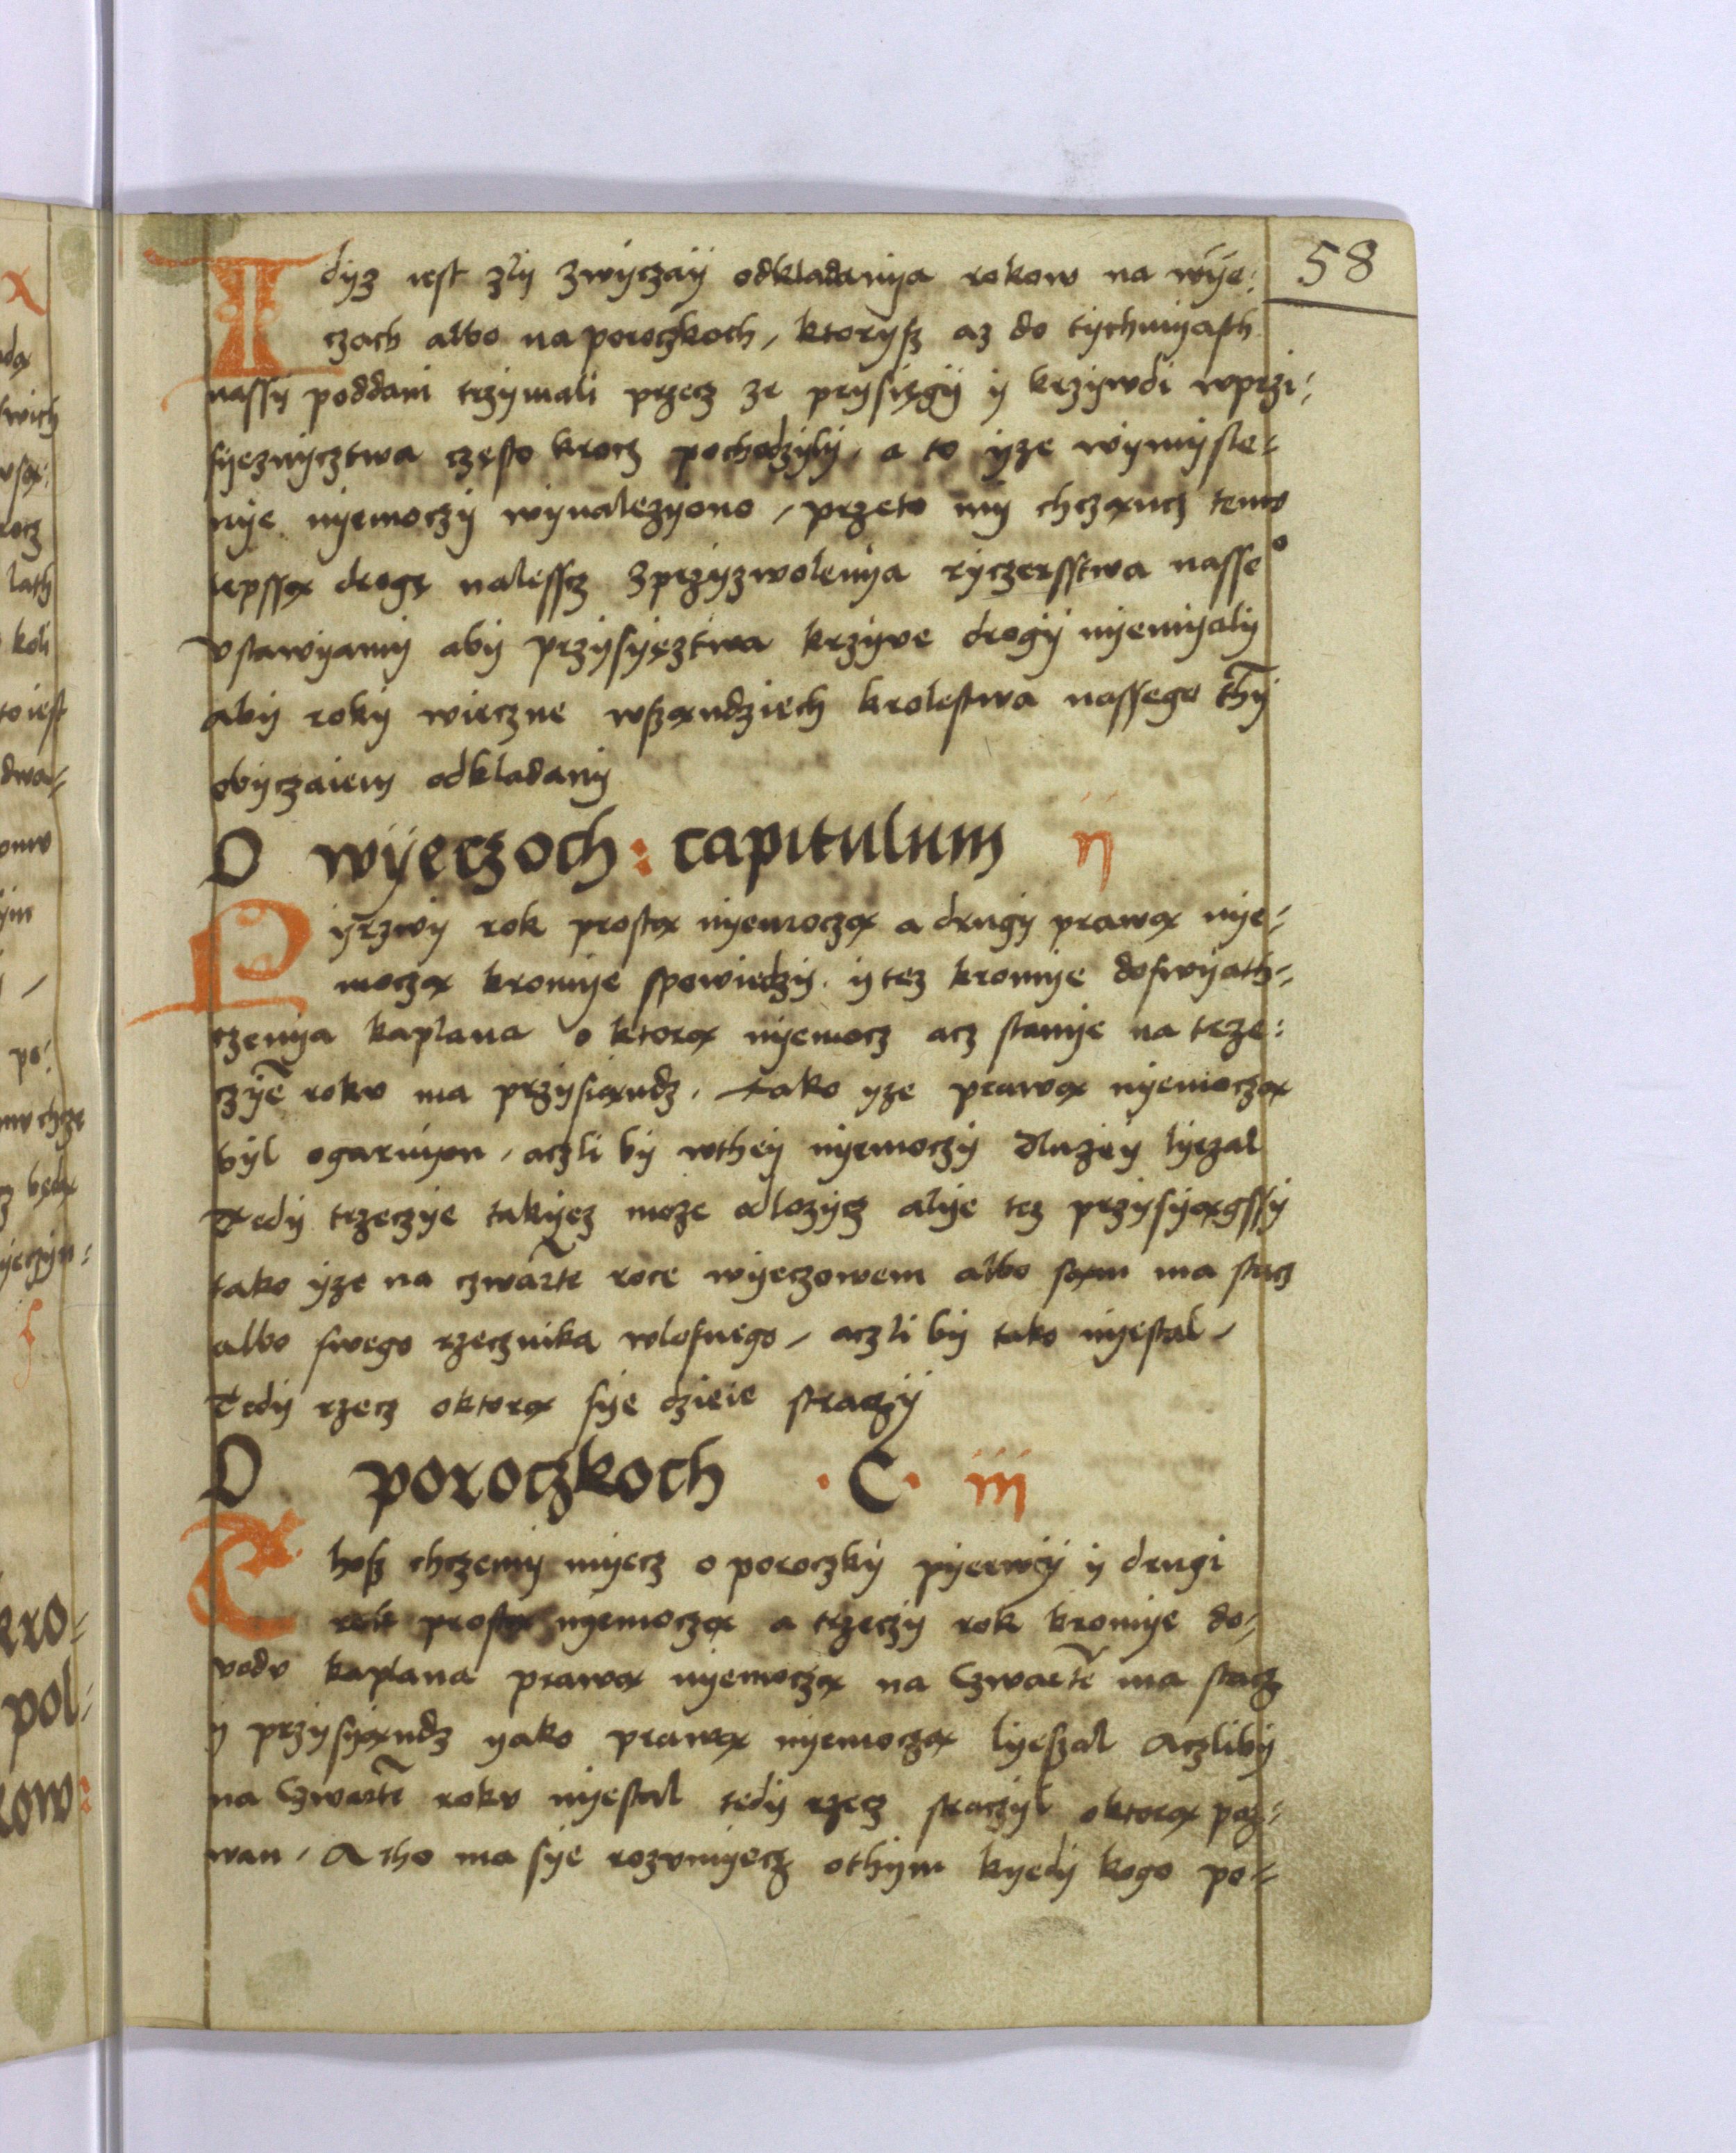 58
Idyz iest zly zwyczaÿ odkladanÿa rokow na wÿe:
czach albo na poroczkoch, ktorysz az do tÿchmÿasth
nassÿ poddani trzÿmali przecz ze prysięgÿ ÿ krzÿwdi wprzi:
sÿeznÿcztwa często krocz pochodzÿlÿ, a to ÿze wÿmÿsle:
nÿe nÿemoczÿ wÿnalezÿono, przeto mÿ chcząncz temv
lepssą drogę nalesscz zprzÿzwolenÿa rÿczersstwa nasseo
vstawÿamÿ abÿ przÿsÿęztwa krzÿve drogÿ nÿemÿalÿ
abÿ rokÿ wieczne wszandziech krolestwa nassego thÿ
obÿczaiem odkladanÿ
O wÿeczoch: capitulum ii
Pÿrzwÿ rok prostą nÿemoczą a drugÿ prawą nÿe:
moczą kromÿe spowiedzÿ. ÿ tez kromÿe doswÿath:
czenÿa kaplana o ktorą nÿemocz acz stanÿe na trze:
czÿē rokv ma przÿsiąndz, Tako ÿze prawą nÿemoczą
bÿl ogarnÿon, aczli bÿ wtheÿ nÿemoczÿ dluzeÿ lÿezal
Tedÿ trzeczÿe takÿez moze odlozÿcz alÿe tez przÿsÿągssÿ
tako ÿze na czwartē roce wÿeczowem albo sąm ma stacz
albo swego rzecznika wlosnego, aczli bÿ tako nÿestal,
Tedÿ rzecz oktorą sÿe dzieie straczÿ
O poroczkoch .C. iii
Thosz chczemÿ mÿecz o poroczkÿ pÿerwÿ ÿ drugi
rok prostą nÿemoczą a trzeczÿ rok kromÿe do:
vodv kaplana prawą nÿemoczą na Czwartē ma stacz
ÿ przÿsÿąndz ÿako prawą nÿemoczą lÿeszal Aczlibÿ
na Czwartē rokv nÿestal tedÿ rzecz straczÿl oktorą poz:
wan, A tho ma sÿe rozvmÿecz othÿm kÿedÿ kogo po: